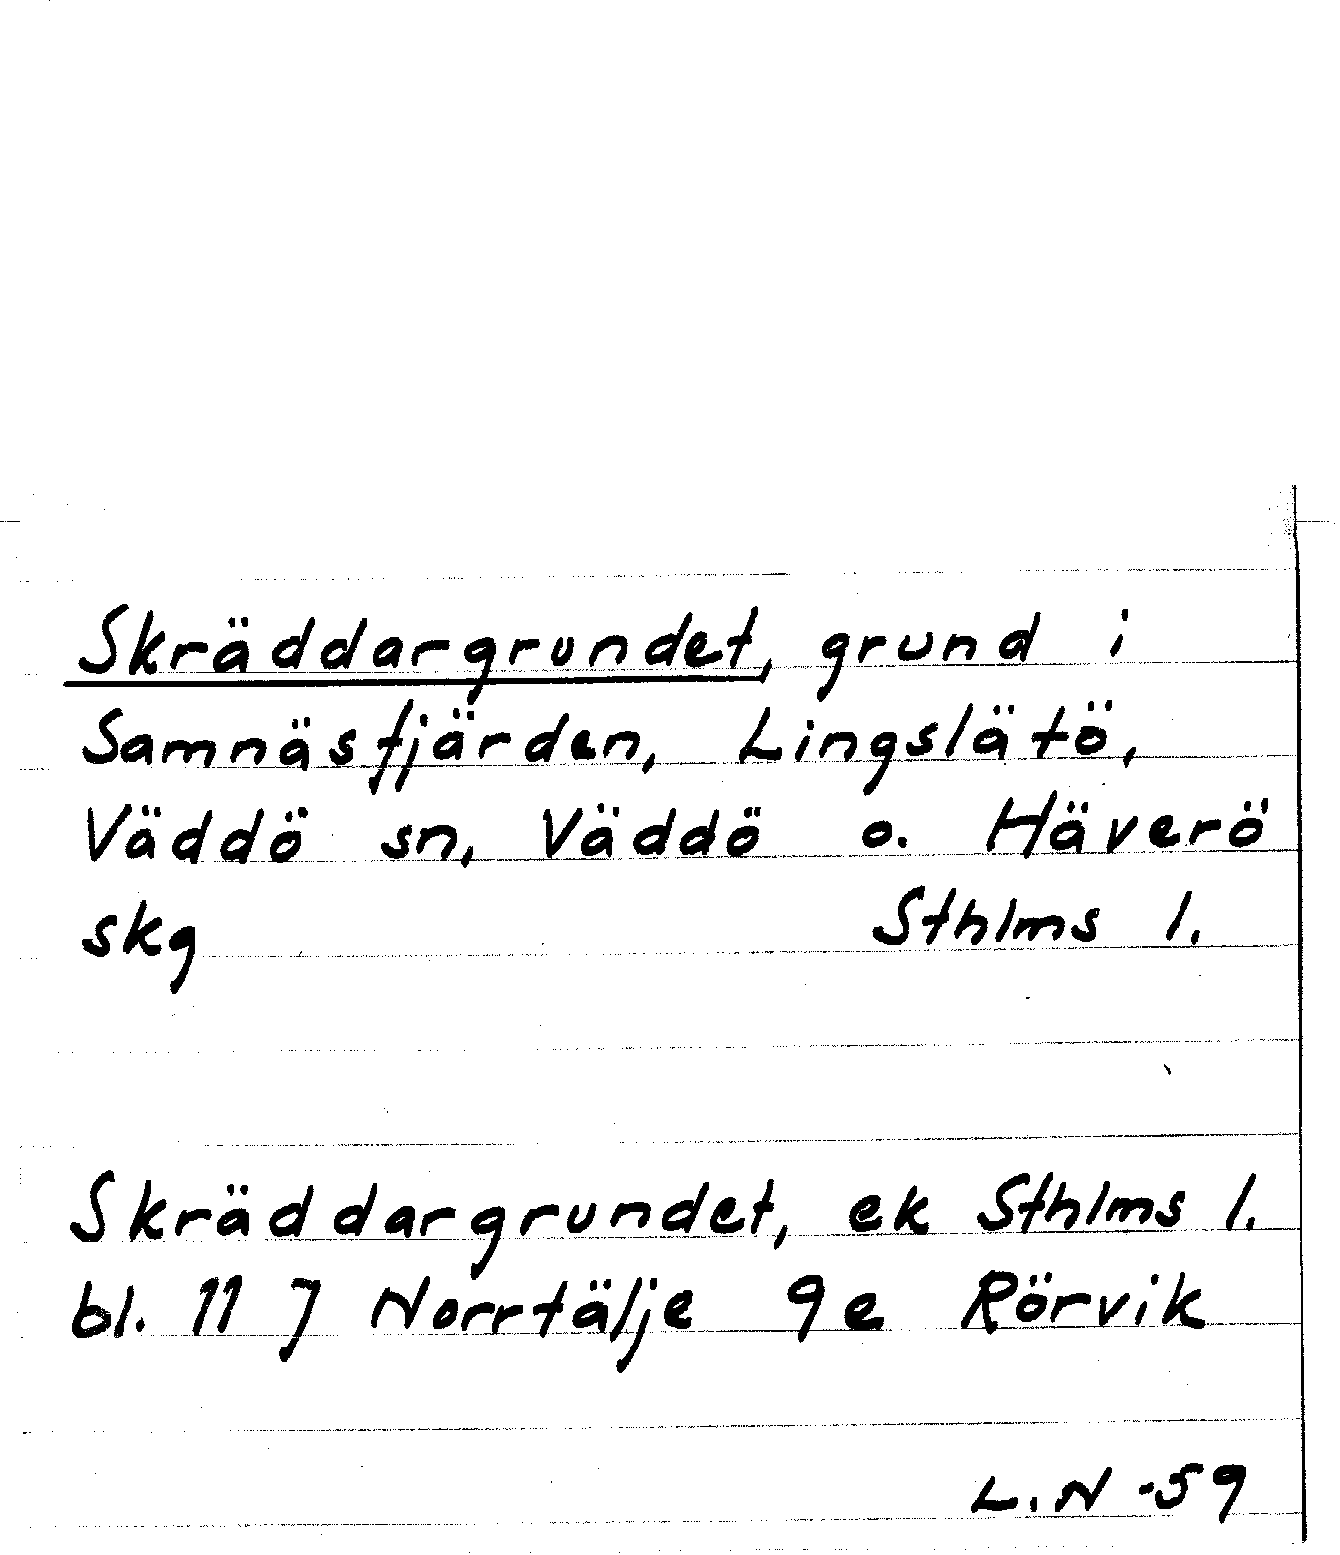 Skräddargrundet, grund i
Samnäsfjärden, Lingslätö,
Väddö sn, Väddö o. Häverö
skg Sthlms l.
Skräddargrundet, ek Sthlms l.
bl. 11 J Norrtälje 9e Rörvik
L.N -59